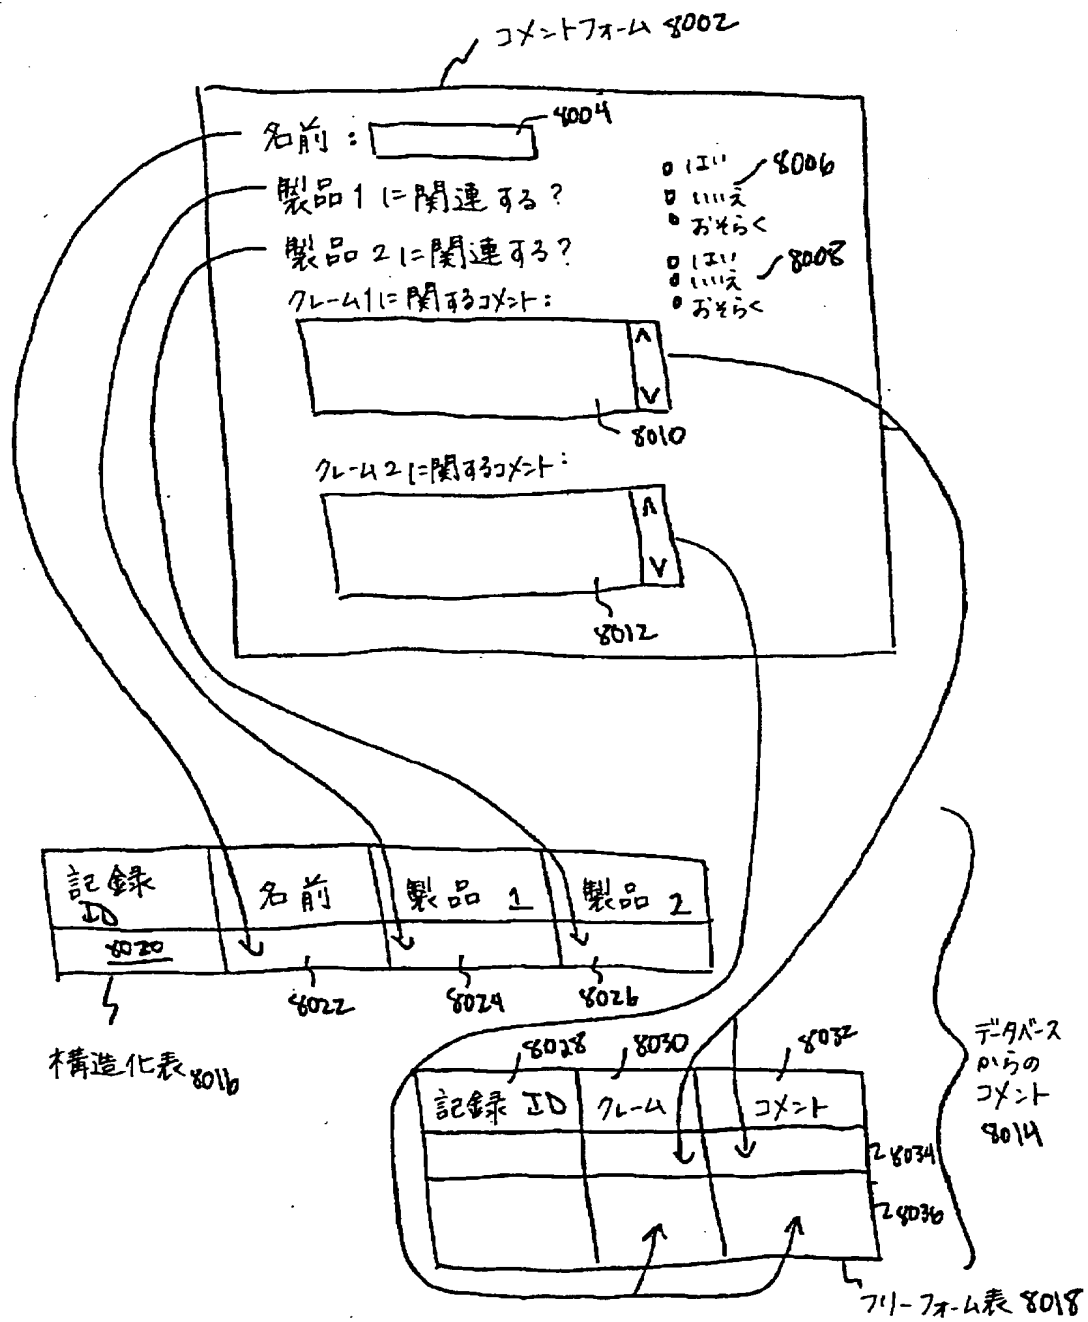 コメントフォーム 8002
名前： 8004
製品1に関連する？
はい 8006
いいえ
おそらく
製品2に関連する？
はい 8008
いいえ
おそらく
クレーム1に関するコメント：
8010
クレーム2に関するコメント：
8012
記録 ID 名前 製品 1 製品 2
8020
8022 8024 8026
構造化表 8016
8028 8030 8032
記録 ID クレーム コメント
8034
8036
データベース
からの
コメント
8014
フリーフォーム表 8018